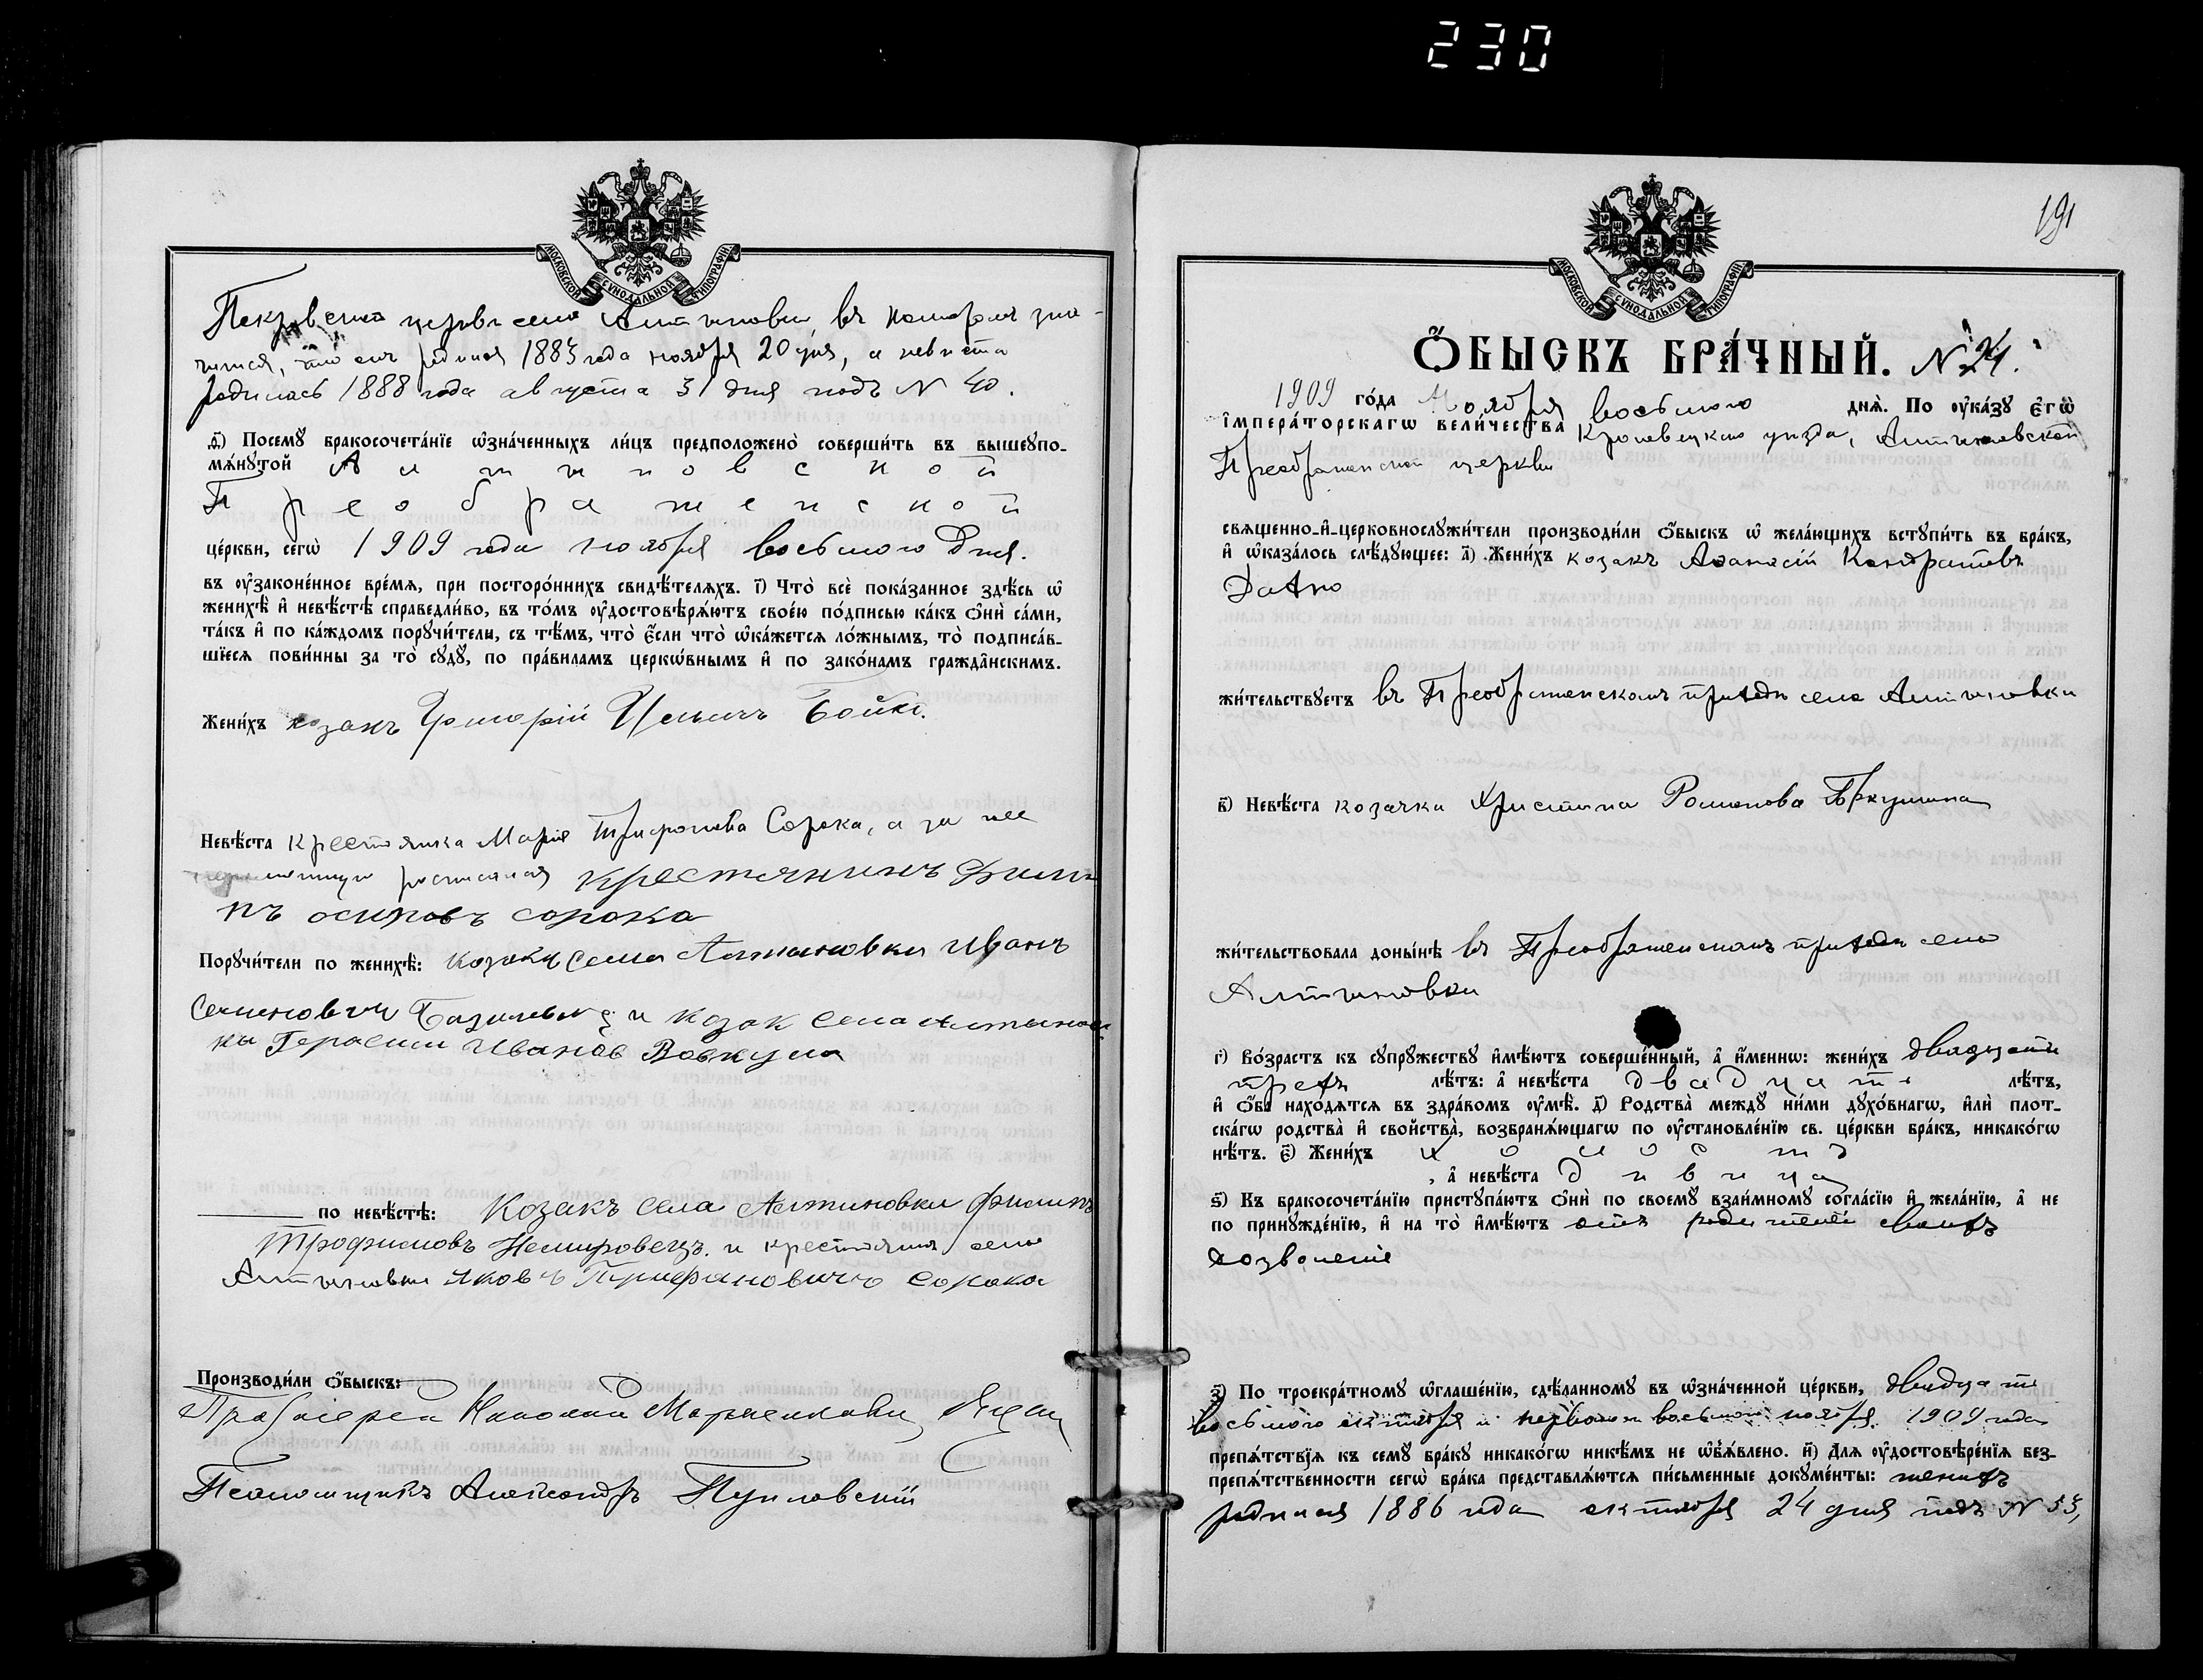 230
МОСКОВСКОЙ СѴНОДАЛЬНОЙ ТИПОГРАФІИ
церкви села Алтыновки, въ которомъ зна-
чится, что онъ родился 1883 года ноября 20 дня, а невѣста
родилась 1888 года августа 31 дня подъ N 40.
д҃) Посемꙋ бракосочета́нїе ѡ҆зна́ченныхъ ли́цъ предположено̀ соверши́ть въ вышеꙋпо-
мѧ́нꙋтой Алтыновской
Преображенской
це́ркви, сегѡ̀ 1909 года ноября восьмого дня.
въ ᲂу҆законе́нное вре́мѧ, при посторо́ннихъ свидѣ́телѧхъ. і҃) Что̀ всѐ пока́занное здѣ́сь ѡ҆
женихѣ̀ и҆ невѣ́стѣ справедли́во, въ то́мъ ᲂу҆достовѣрѧ́ютъ свое́ю по́дписью ка́къ ѻ҆нѝ са́ми,
та́къ и҆ по ка́ждомъ порꙋчи́тели, съ тѣ́мъ, что̀ є҆́сли что̀ ѡ҆ка́жетсѧ ло́жнымъ, то̀ подписа́в-
шїесѧ пови́нны за то̀ сꙋдꙋ̀, по пра́виламъ церкѡ́внымъ и҆ по зако́намъ гражда̑нскимъ.
Жени́хъ козакъ Григорій Ильичъ Бойко.
Невѣ́ста крестьянка Марія Трифонова Сорока, а за нее
неграмотную росписался крестянинъ Фили
пъ осиповъ сорока
Порꙋчи́тели по женихѣ̀: козакъ села Алтиновки Иванъ
Семеновичъ и козак села Алтынов
ки Герасим Иванов Вовкула
по невѣ́стѣ: Козакъ села Алтиновки Филипъ
Трофимовъ Немировецъ. и крестянинъ села
Алтыновки яковъ Трифановичъ сорока
Производи́ли ѻ҆́быскъ:
Протоіерей Николай
Псаломщикъ Александръ Путловскій
191
МОСКОВСКОЙ СѴНОДАЛЬНОЙ ТИПОГРАФІИ
Ѻ҆́БЫСКЪ БРА́ЧНЫЙ. N 24.
1909 го́да Ноября восьмого днѧ̀. По ᲂу҆ка́зꙋ є҆гѡ̀
і҆мпера́торскагѡ вели́чества Кролевецкаго уѣзда, Алтыновской
Преображенской церкви
свѧщенно-и҆-церковнослꙋжи́тели производи́ли ѻ҆́быскъ ѡ҆ жела́ющихъ встꙋпи́ть въ бра́къ,
и҆ ѡ҆каза́лось слѣ́дꙋющее: а҃) Жени́хъ козакъ Аѳанасій Кондратовъ
Дахно
жи́тельствꙋетъ въ Преображенскомъ приходѣ села Алтыновки
в҃) Невѣ́ста козачка Христина Романова
жи́тельствовала доны́нѣ въ Преображенскомъ приходѣ села
Алтыновки
г҃) Во́зрастъ къ сꙋпрꙋ́жествꙋ и҆мѣ́ютъ соверше́нный, а҆ и҆́меннѡ: жени́хъ двадцати
трехъ лѣ́тъ: а҆ невѣ́ста двадцати лѣ́тъ,
и҆ ѻ҆́ба нахо́дѧтсѧ въ здра́вомъ ᲂу҆мѣ̀. д҃) Родства̀ междꙋ̀ ни́ми дꙋхо́внагѡ, и҆лѝ плот-
ска́гѡ родства̀ и҆ свойства̀, возбранѧ́ющагѡ по ᲂу҆становле́нїю св. це́ркви бра́къ, никако́гѡ
нѣ́тъ. є҃) Жени́хъ холостъ
, а҆ невѣ́ста дѣвица
ѕ҃) Къ бракосочета́нїю пристꙋпа́ютъ ѻ҆нѝ по своемꙋ̀ взаи́мномꙋ согла́сїю и҆ жела́нїю, а҆ не
по принꙋжде́нїю, и҆ на то̀ и҆мѣ́ютъ отъ родителей своихъ
дозволеніе
з҃) По троекра́тномꙋ ѡ҆глаше́нїю, сдѣ́ланномꙋ въ ѡ҆зна́ченной це́ркви, двадцать
восьмого октября и перваго восьмого ноября 1909 года
препѧ́тствїѧ къ семꙋ̀ бра́кꙋ никако́гѡ никѣ́мъ не ѡ҆б̾ѧ́влено. и҃) Длѧ ᲂу҆достовѣре́нїѧ без-
препѧ́тственности сегѡ̀ бра́ка представлѧ́ютсѧ пи́сьменные докꙋме́нты: женихъ
родился 1886 года октября 24 дня подъ N 53,